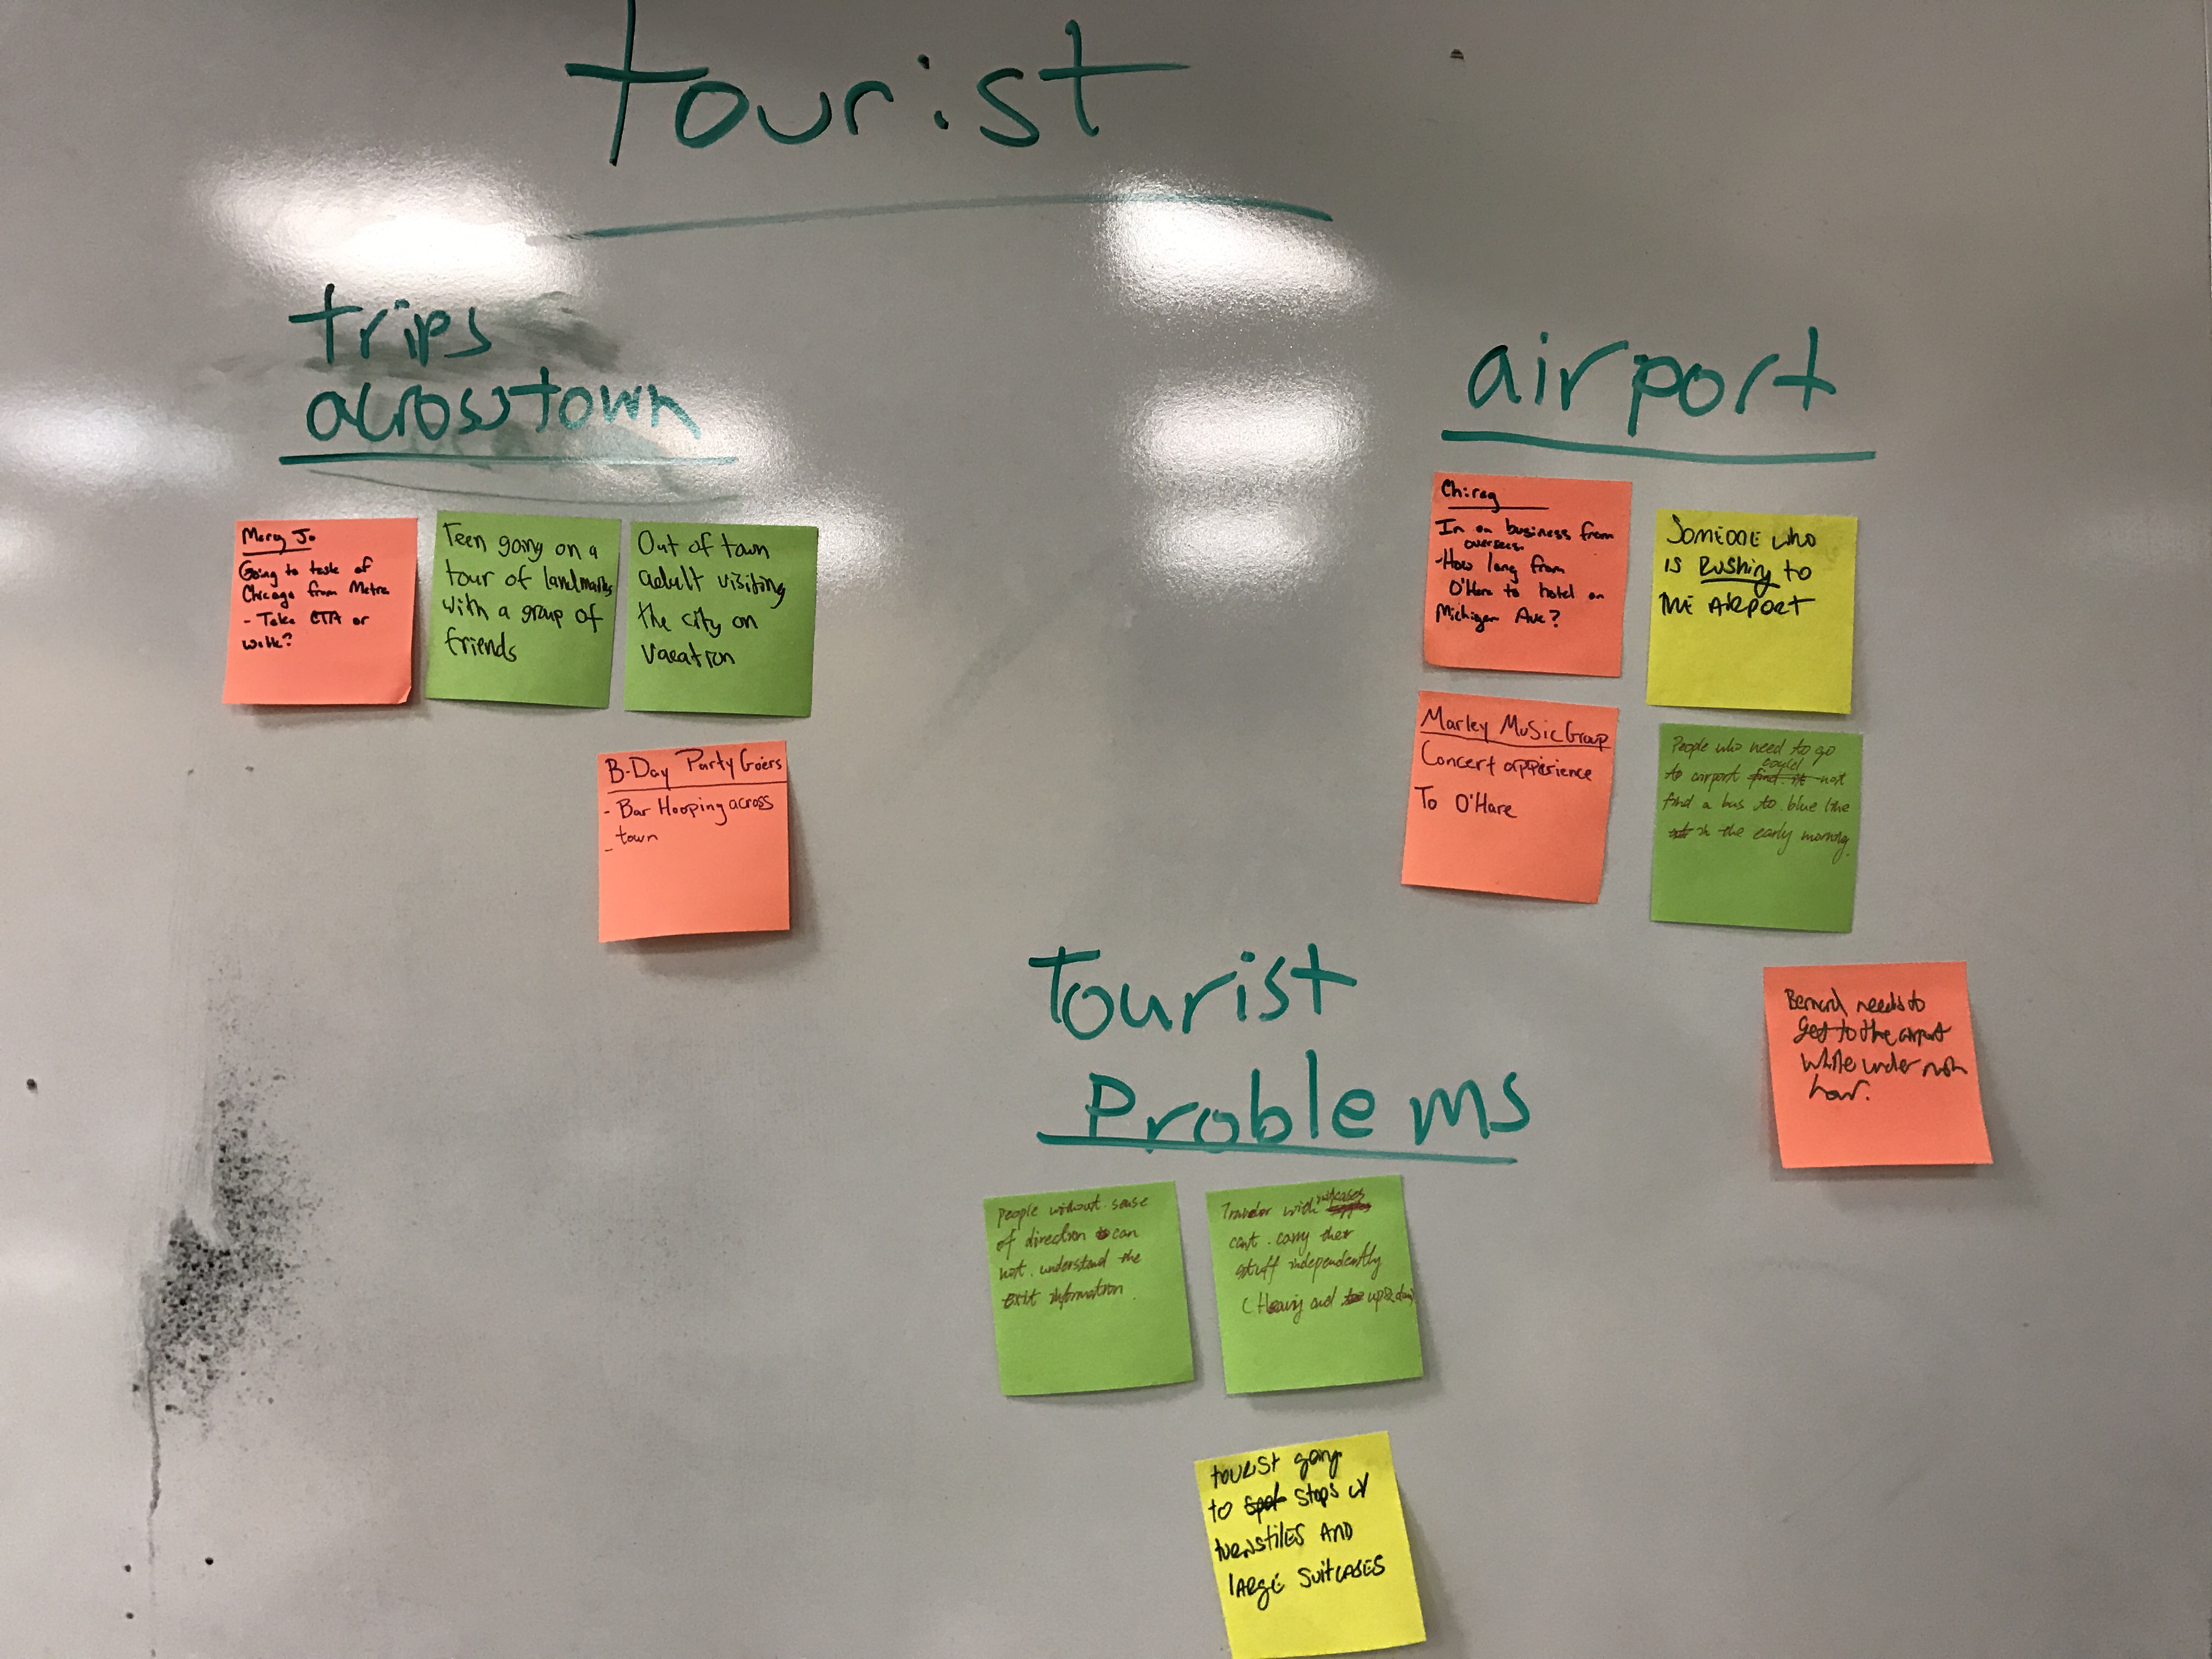 tourist
trips
across town
Mary Jo
Going to taste of
Chicago from Metra
- Take CTA or
walk?
Teen going on a
tour of landmarks
with a group of
friends
Out of town
adult visiting
the city on
vacation
B-Day Party Goers
- Bar Hooping across
town
-
airport
Chirag
In on business from
overseas
- How long from
O'Hare to hotel on
Michigan Ave?
SOMEONE who
is Rushing to
THE AIRPORT
Marley Music Group
Concert
To O'Hare
People who need to go
to airport could not
find a bus to blue line
in the early morning.
Bernard needs to
get to the airport
while under rush
hour.
tourist
Problems
People without sense
of direction can
not understand the
exit information.
Traveler with suitcases
cant carry their
stuff independently
(Heavy and up & down)
tourist going
to spot stops w/
turnstiles AND
large suitcases